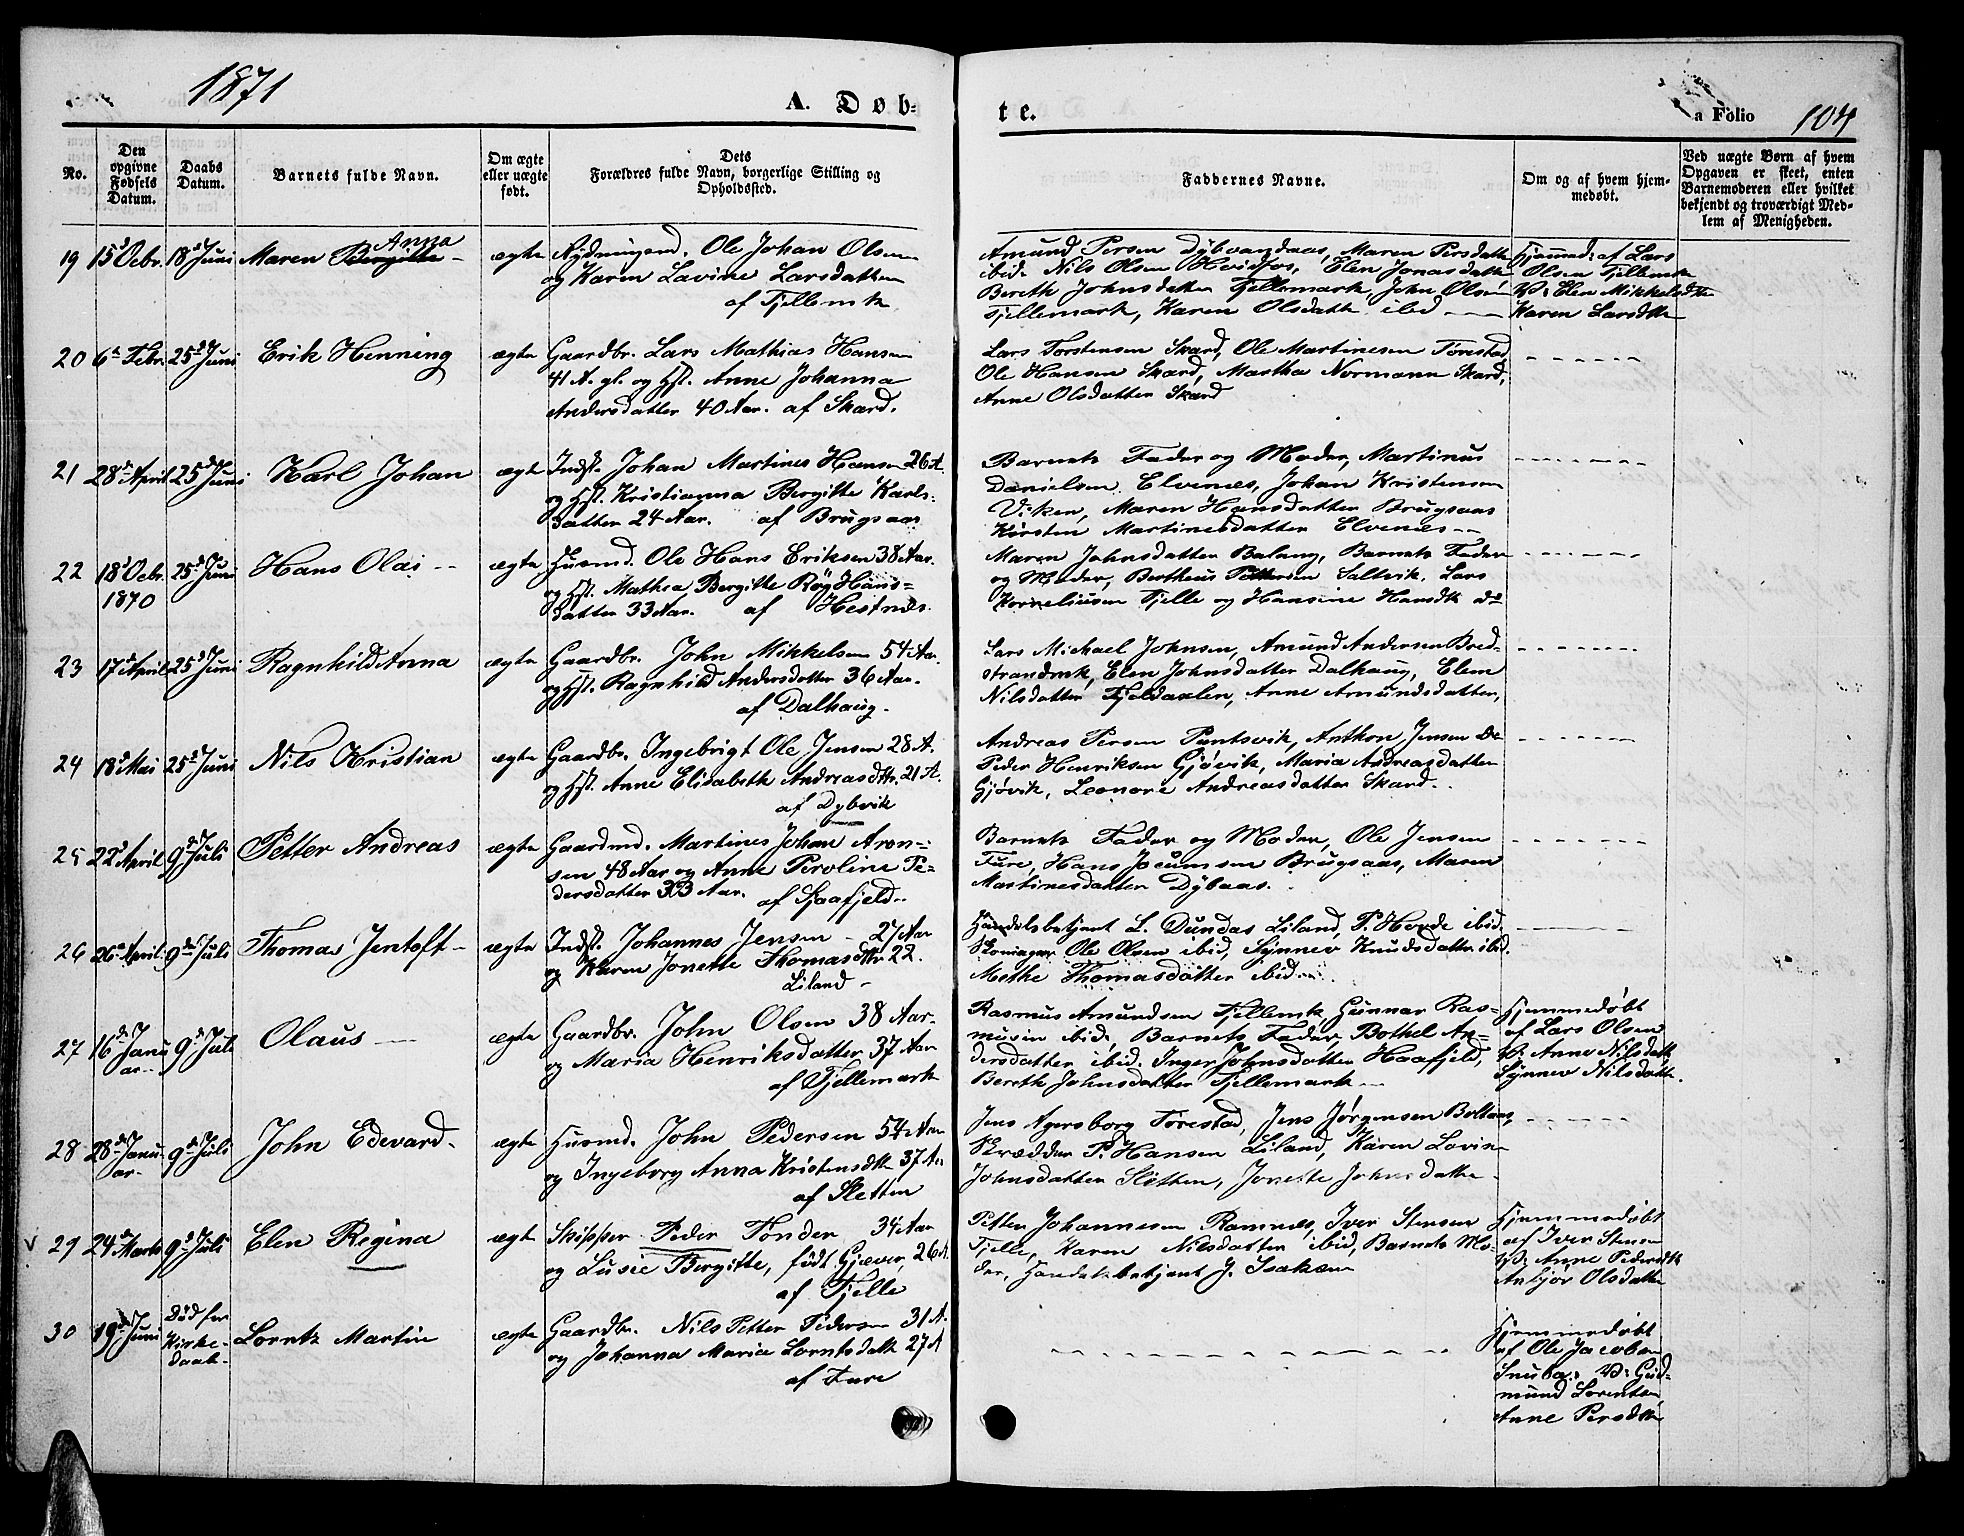 1871
A. Døb-
te.
a Folio 104
No.
Den opgivne Fødsels Datum.
Daabs Datum.
Barnets fulde Navn.
Om ægte eller uægte født.
Dets Forældres fulde Navn, borgerlige Stilling og Opholdssted.
Faddernes Navne.
Om og af hvem hjemmedøbt.
Ved uægte Børn af hvem Opgaven er skeet, enten Barnemoderen eller hvilket bekjendt og troværdigt Medlem af Menigheden.
19 15 Febr. 18 Juni Maren Bergitte Anna ægte Rydningsmd. Ole Johan Olsen
og Karen Lavine Larsdatter
af Fjellemk
Amund Persen Dybvandaas, Maren Persdatte
ibid. Nils Olsen Hvidfos, Elen Jonasdatte
Bereth Johnsdatter Fjellemark, John Olsen
Fjellemark, Karen Olsdatte ibid
Hjemmed: af Lars
Olsen Fjellemk
V: Elen Mikkelsdtr
Karen Larsdtr
20 6 Febr. 25 Juni Erik Henning ægte Gaardbr. Lars Mathias Hansen
41 A. gl. og Hst. Anne Johanna
Andersdatter 40 Aar. af Skard.
Lars Torstensen Skard, Ole Martinesen Torestad
Ole Hansen Skard, Martha Normann Skard,
Anne Olsdatter Skard
21 28 April 25 Juni Karl Johan ægte Indst. Johan Martines Hansen 26 A.
og Hst. Kristianna Bergitte Karls-
datter 24 Aar. af Brugsaas
Barnets Fader og Moder, Martinus
Danielsen Elvenes, Johan Kristensen
Viken, Maren Hansdatter Brugsaas
Kirsten Martinesdatter Elvenes
22 18 Febr. 1870 25 Juni Hans Olai ægte Husmd. Ole Hans Eriksen 38 Aar.
og Hst. Mathea Bergitte Røg Hans-
datter 33 Aar. af Hestnes.
Maren Johnsdatter Balang, Barnets Fader
og Moder, Bertheus Pettersen Saltvik, Lars
Korneliusen Fjelle og Hansine Hansdtr do
23 17 April 25 Juni Ragnhild Anna ægte Gaardbr. John Mikkelsen 54 Aar.
og Hst. Ragnhild Andersdatter 36 Aar.
af Dalhaug
Lars Michael Johnsen, Amund Andersen Bred-
strandmk, Elen Johnsdatter Dalhaug, Elen
Nilsdatter Fjeldaxlen, Anne Amundsdatter,
24 18 Mai 25 Juni Nils Kristian ægte Gaardbr. Ingebrigt Ole Jensen 28 A.
og Hst. Anne Elisabeth Andreasdtr. 21 A.
af Dybvik
Andreas Persen Puntsvik, Anthon Jensen do
Peder Henriksen Gjøvik, Maria Andreasdatter
Gjøvik, Leonore Andreasdatter Skard.
25 22 April 9 Juli Petter Andreas ægte Gaardmd. Martines Johan Aron-
sen 48 Aar og Anne Peroline Pe-
dersdatter 33 Aar. af Sjaafjeld
Barnets Fader og Moder, Ole Jensen
Fure, Hans Jocumsen Brugsaas, Maren
Martinesdatter Dybaas.
26 26 April 9 Juli Thomas Jentoft ægte Indst. Johannes Jensen 27 Aar
og Karen Jonette Thomasdtr. 22.
Liland
Handelsbetjent L. Dundas Liland, P. Hovde ibid.
Skomager Ole Olsen ibid, Synnev Knudsdatter ibid.
Methe Thomasdatter ibid
27 16 Januar 9 Juli Olaus ægte Gaardbr. John Olsen 38 Aar
og Maria Henriksdatter 37 Aar
af Fjellemark
Rasmus Amundsen Fjellemk, Gunnar Ras-
musen ibid, Barnets Fader, Bothel An-
dersdatter ibid. Inger Johnsdatter Haafjeld,
Bereth Johnsdatter Fjellemark
Hjemmedøbt
af Lars Olsen
V: Anne Nilsdtr
Synnev Nilsdatte.
28 28 Januar 9 Juli John Edevard ægte Husmd. John Pedersen 54 Aar
og Ingeborg Anna Kristensdtr 37 Aar
af Sletten
Jens Agersborg Torestad, Jens Jørgensen Boltaas
Skrædder P. Hansen Liland, Karen Lovin
Johnsdatter Sletten, Jonette Johnsdatte
29 24 Marts 9 Juli Elen Regina ægte Skipper Peder Tønder 34 Aar
og Lusie Bergitte, født Gjæver, 26 A.
af Fjelle
Petter Johannesen Ramnes, Iver Stensen
Fjelle, Karen Nilsdatter ibid, Barnets Mo-
der, Handelsbetjent J. Isaksen
Hjemmedøbt
af Iver Stensen
V: Anne Pedersdtr
Anbjør Olsdatte
30 19 Juni Død før Kirke-daab Lorntz Martin ægte Gaardbr. Nils Petter Pedersen 31 A.
og Johanna Maria Lorntsdatte 27 A
af Fure
Hjemmedøbt
af Ole Jacobsen
V: Gud-
mund Lorentsen
Anne Persdtr